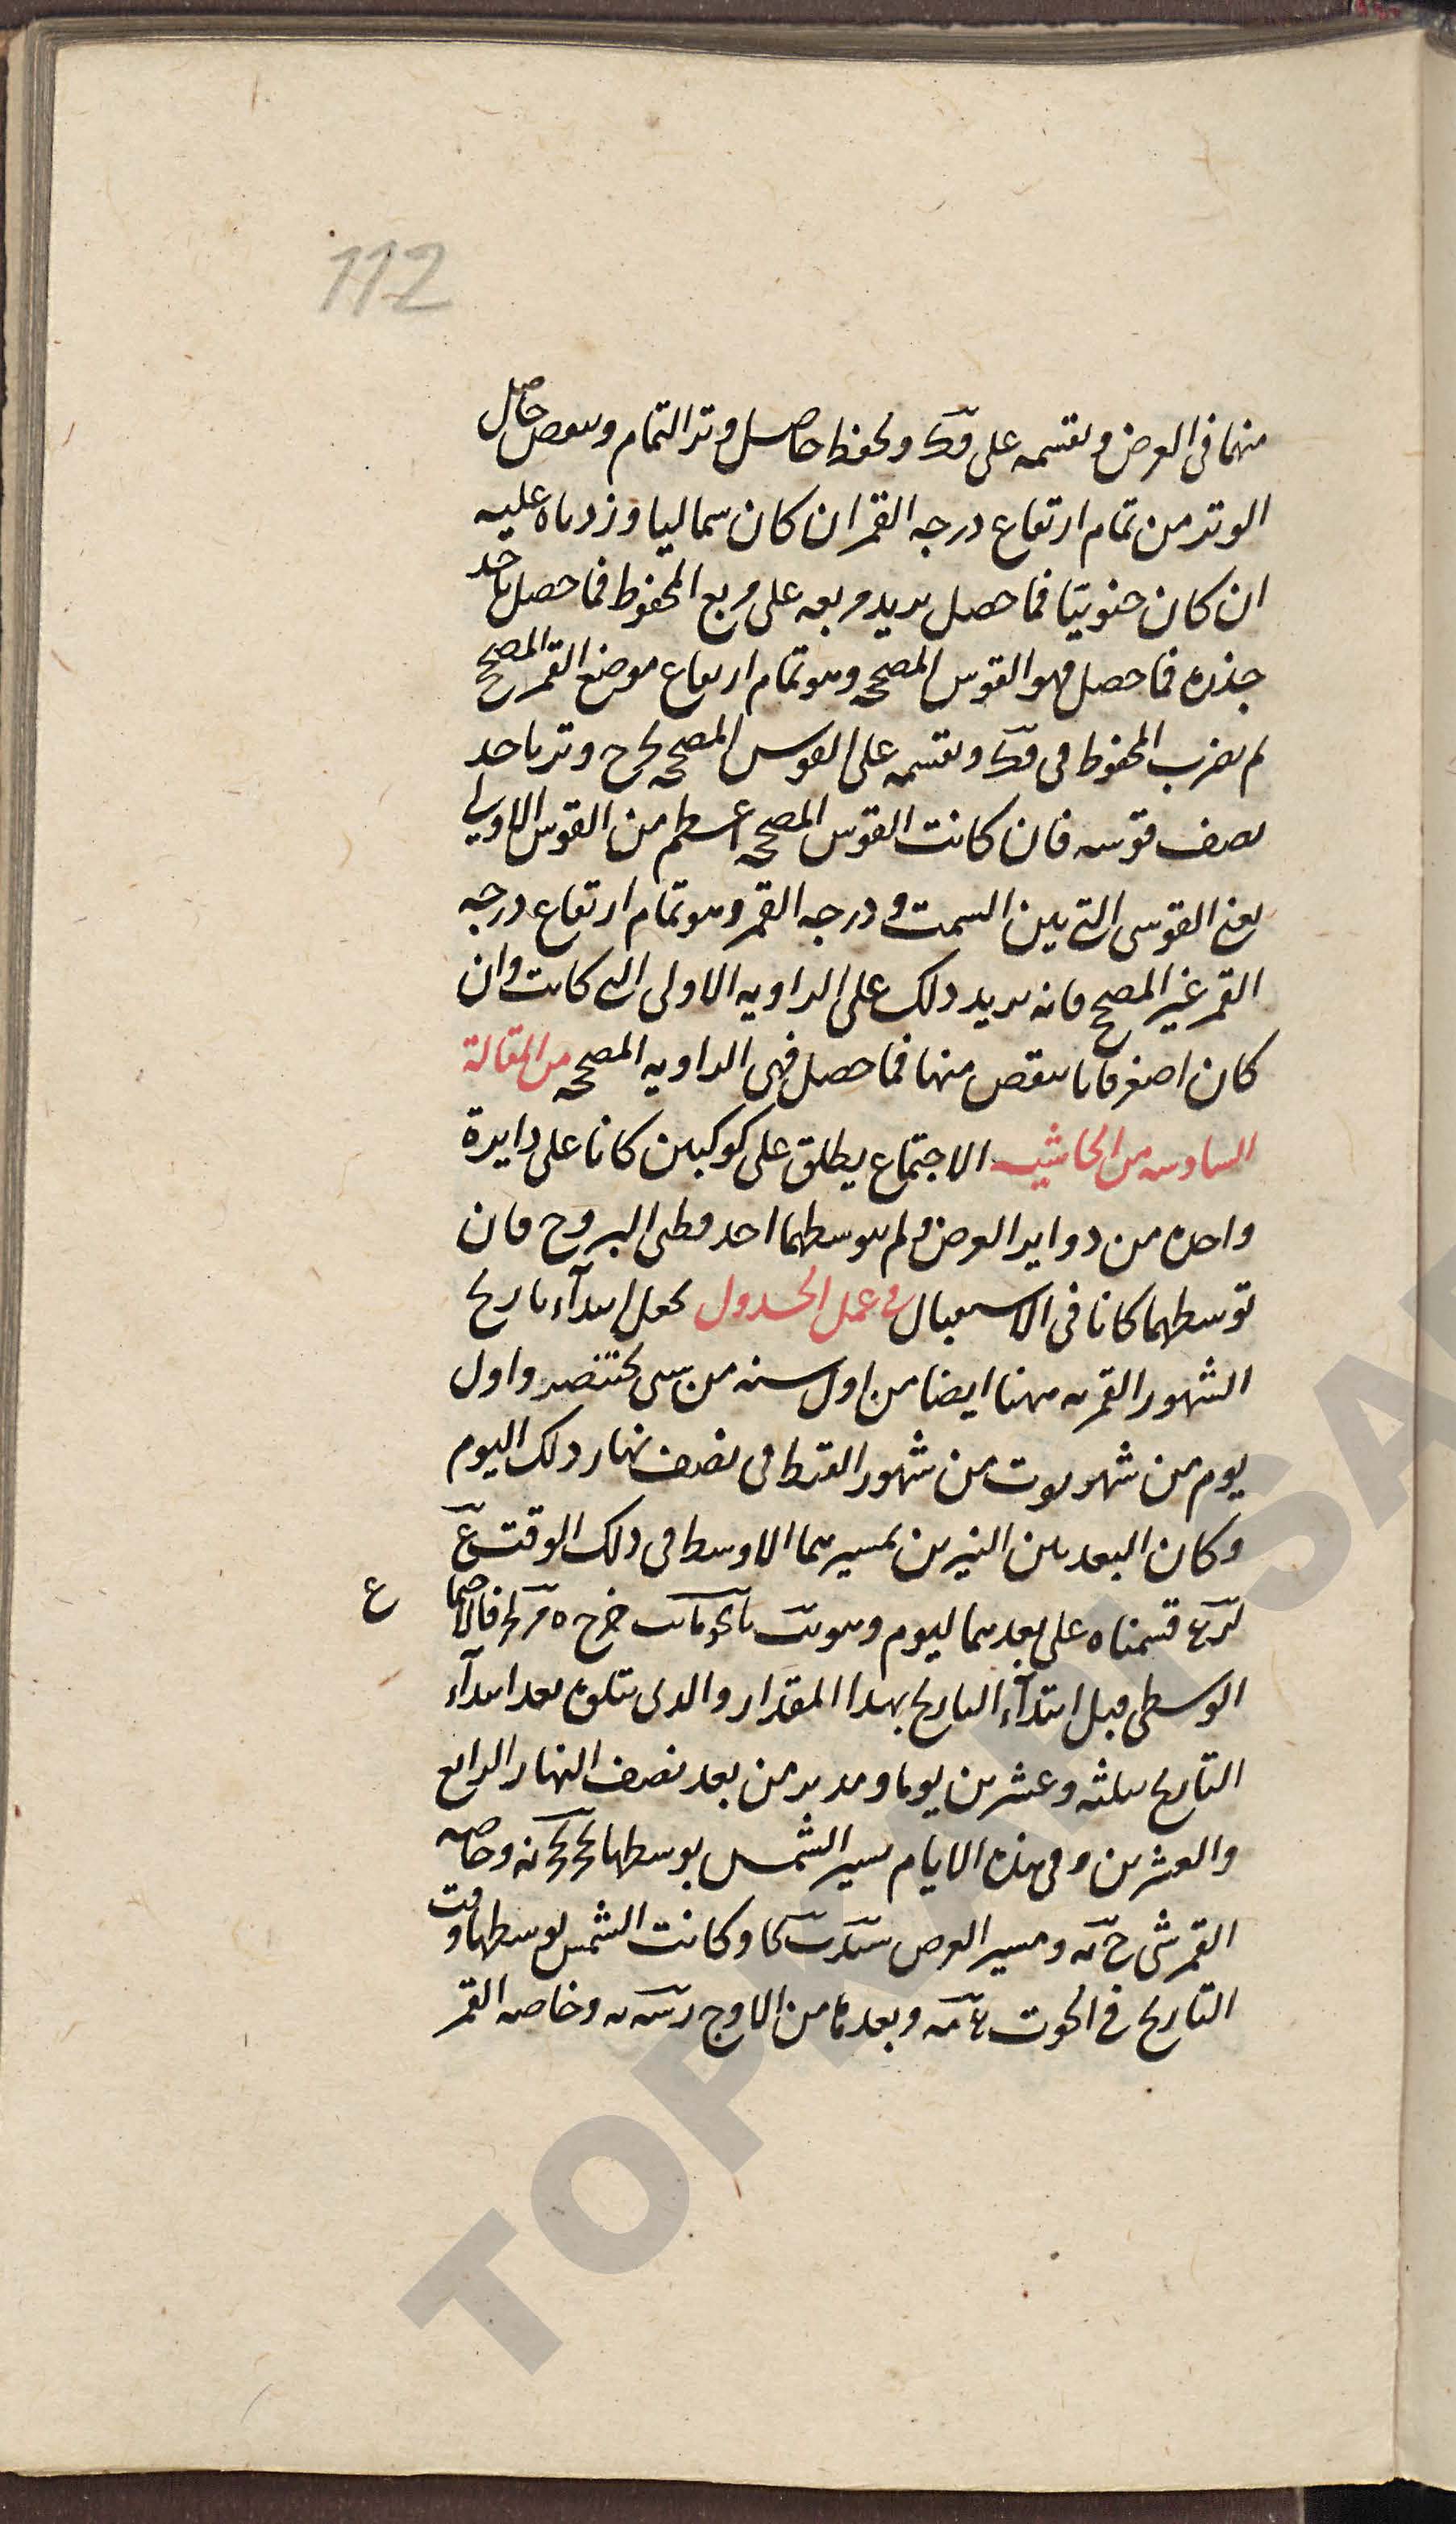 112
منهما فى العرض ونقسمه على قك ونحفظ حاصل وتر التمام وننقص حاصل
الوتر من تمام ارتفاع درجه القمر ان كان شماليا وزدناه عليه
ان كان جنوبيا فما حصل نزيد مربعه على مربع المحفوظ فما حصل ناخذ
جذره فما حصل فهو القوس المصححه وهو تمام ارتفاع موضع القمر المصحح
ثم نضرب المحفوظ فى قك ونقسمه على القوس المصححه يخرج وتر ناخذ
نصف قوسه فان كانت القوس المصححه اعظم من القوس الاولى
يعنى القوس التى بين السمت و درجه القمر وهو تمام ارتفاع درجه
القمر غير المصحح فانه نزيد ذلك على الزاويه الاولى التى كانت وان
كان اصغر فانا ننقص منها فما حصل فهى الزاويه المصححه من المقالة
السادسه من الحاشيه الاجتماع يطلق على كوكبين كانا على دايرة
واحده من دواير العرض ولم يتوسطهما احد قطبى البروج فان
توسطهما كانا فى الاستقبال فى عمل الجدول نجعل ابتدآء تاريخ
الشهور القمريه ههنا ايضا من اول سنه من سنى بختنصر واول
يوم من شهر توت من شهور القبط فى نصف نهار ذلك اليوم
وكان البعد بين النيرين بمسيرهما الاوسط فى ذلك الوقت ع
لز قسمناه على بعدهما ليوم وهو خرج ه مز فالاجتماع
الوسطى قبل ابتدآء التاريخ بهذا المقدار والذى يتلوه بعد ابتدآء
التاريخ بثلثه وعشرين يوما و من بعد نصف النهار الرابع
والعشرين وفى هذه الايام مسير الشمس بوسطها وخاصه
القمر شى ح ومسير العرض كا وكانت الشمس بوسطها وقت
التاريخ فى الحوت مه وبعدها من الاوج رسه يه وخاصه القمر
ع